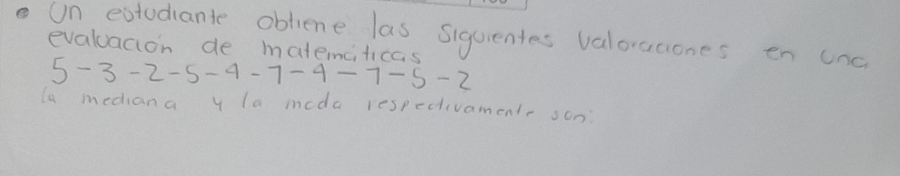 Un estudiante obtiene las siguientes valoraciones en una
evaluación de matemáticas
5-3-2-5-4-1-4-1-5-2
la mediana y la moda respectivamente son: